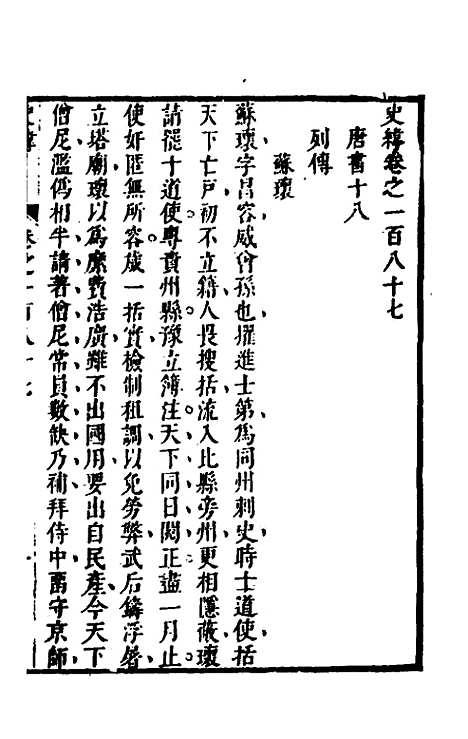 史緯卷之一百八十七
唐書十八
列傳
蘇瓌
蘇瓌字昌容威會孫也擢進士第爲同州刺史時十道使括
天下亡戸初不立籍人畏搜括流入比縣旁州更相隱蔽瓌
請罷十道使專責州縣豫立簿注天下同日閱正盡一月止
使奸匿無所容歲一括實檢制租調以免勞弊武后鑄浮屠
立塔廟瓌以爲糜費浩廣雖不出國用要出自民產今天下
僧尼濫僞相半請著僧尼常員數缺乃補拜侍中畱守京師
史緯
卷之一百八十七